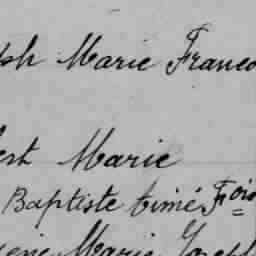 ph Marie Franco
est Marie
Baptiste Aimé Fois
Marie Joseph